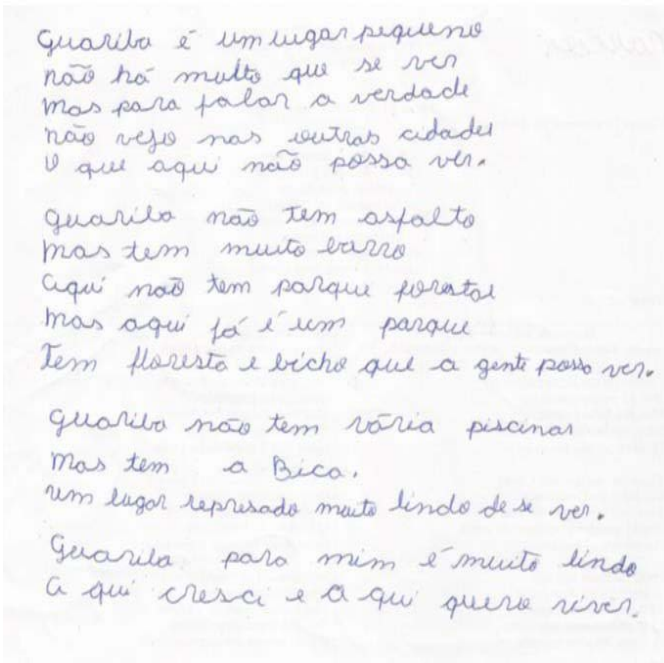 Guariba é um lugar pequeno
não há muito que se ver
mas para falar a verdade
não vejo nas outras cidades
O que aqui não possa ver.
guariba não tem asfalto
mas tem muito barro
aqui não tem parque forestal
mas aqui já é um parque
Tem floresta e bicho que a gente possa ver.
guariba não tem vária piscinas
mas tem a Bica.
um lugar represado muito lindo de se ver.
Guariba para mim é muito lindo
a qui cresci e a qui quero viver.